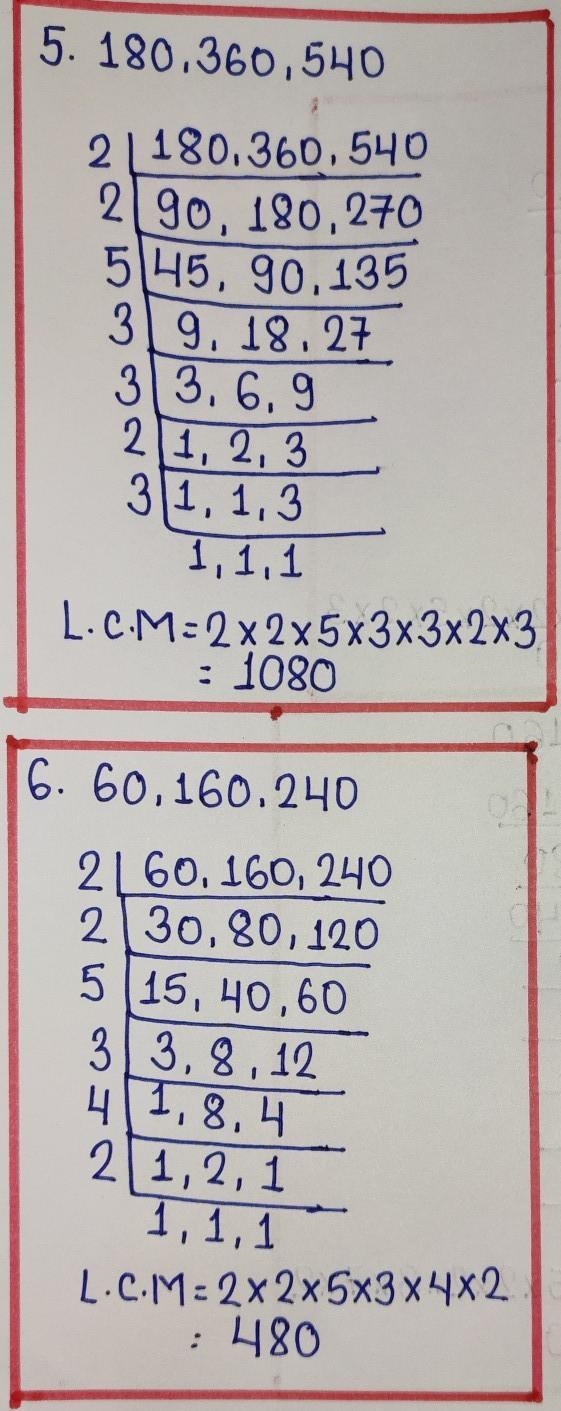 5. 180, 360, 540
2 | 180, 360, 540
2 | 90, 180, 270
5 | 45, 90, 135
3 | 9, 18, 27
3 | 3, 6, 9
2 | 1, 2, 3
3 | 1, 1, 3
1, 1, 1
L.C.M = 2×2×5×3×3×2×3
= 1080
6. 60, 160, 240
2 | 60, 160, 240
2 | 30, 80, 120
5 | 15, 40, 60
3 | 3, 8, 12
4 | 1, 8, 4
2 | 1, 2, 1
1, 1, 1
L.C.M = 2×2×5×3×4×2
: 480